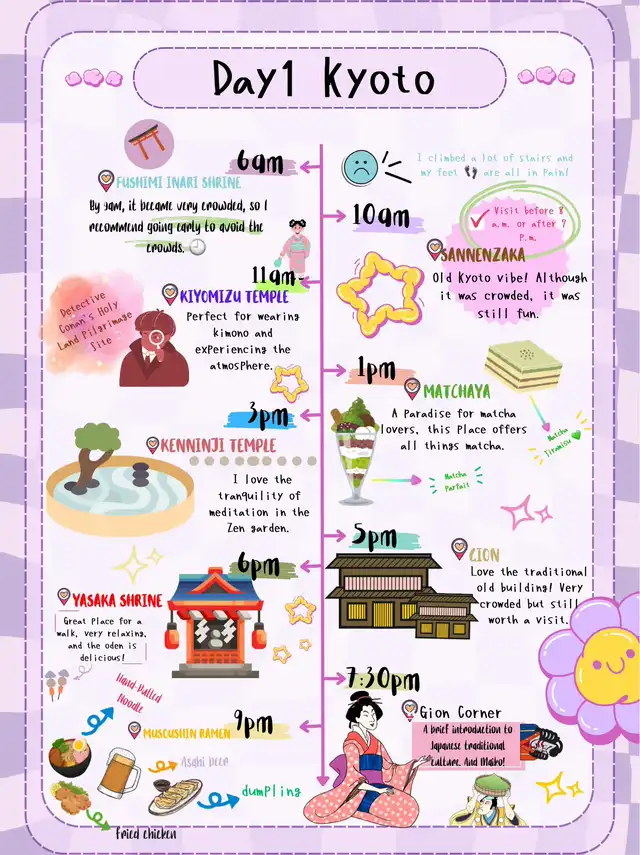 Day1 Kyoto
6am
FUSHIMI INARI SHRINE
By 9am, it became very crowded, so I
recommend going early to avoid the
crowds.
I climbed a lot of stairs and
my feet 👣 are all in pain!
10am
Visit before 8
a.m. or after 7
p.m.
SANNENZAKA
Old Kyoto vibe! Although
it was crowded, it was
still fun.
11am
KIYOMIZU TEMPLE
Perfect for wearing
kimono and
experiencing the
atmosphere.
Detective
Conan's Holy
Land Pilgrimage
Site
1pm
MATCHAYA
A Paradise for matcha
lovers, this Place offers
all things matcha.
Matcha
Tiramisu
Matcha
Parfait
3pm
KENNINJI TEMPLE
I love the
tranquility of
meditation in the
Zen garden.
5pm
GION
Love the traditional
old building! Very
crowded but still
worth a visit.
6pm
YASAKA SHRINE
Great Place for a
walk, very relaxing,
and the oden is
delicious!
7:30pm
Gion Corner
A brief introduction to
Japanese traditional
culture. And Maiko!
9pm
MUSCUSHIN RAMEN
Hand-Pulled
Noodle
Asahi beer
dumpling
Fried chicken